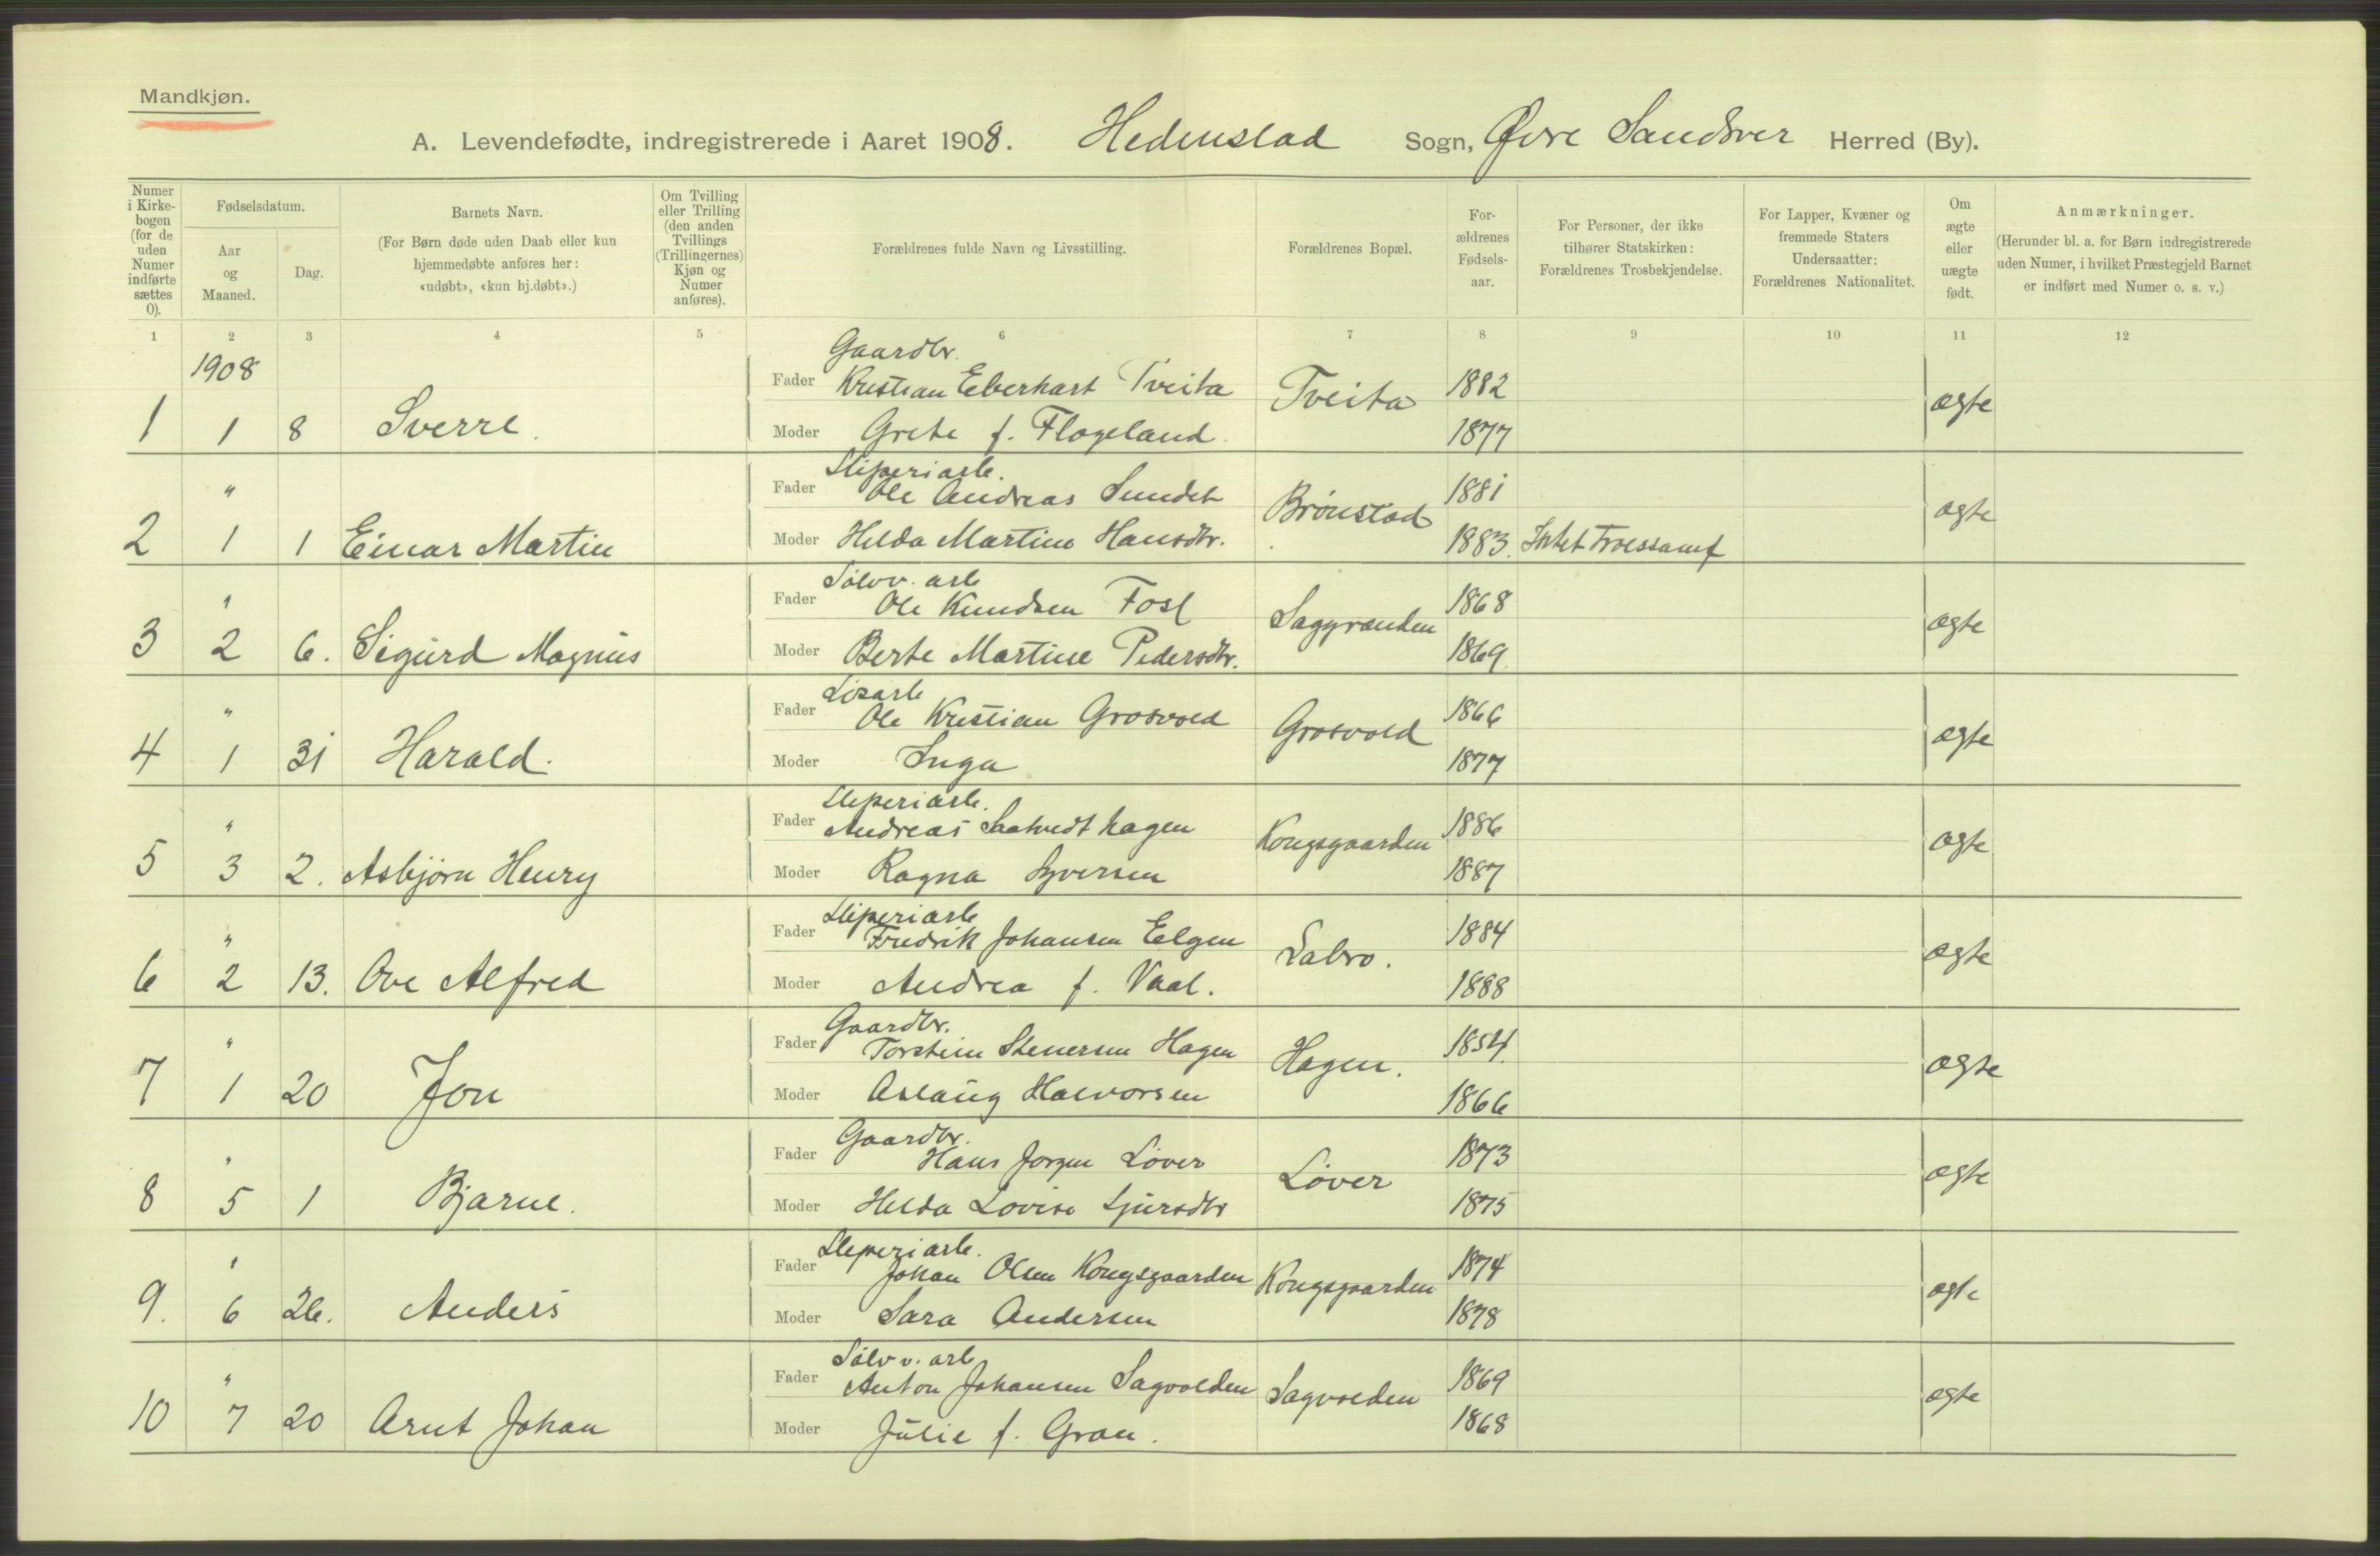 Mandkjøn.
A. Levendefødte, indregistrerede i Aaret 1908. Hedenstad Sogn, Øvre Sandsver Herred (By).
Numer i Kirkebogen (for de uden Numer indførte sættes 0).
Fødselsdatum.
Aar og Maaned.
Dag.
Barnets Navn.
(For Børn døde uden Daab eller kun hjemmedøbte anføres her: «udøbt», «kun hj.døbt».)
Om Tvilling eller Trilling (den anden Tvillings (Trillingernes) Kjøn og Numer anføres).
Forældrenes fulde Navn og Livsstilling.
Forældrenes Bopæl.
Forældrenes Fødselsaar.
For Personer, der ikke tilhører Statskirken: Forældrenes Trosbekjendelse.
For Lapper, Kvæner og fremmede Staters Undersaatter: Forældrenes Nationalitet.
Om ægte eller uægte født.
Anmærkninger.
(Herunder bl. a. for Børn indregistrerede uden Numer, i hvilket Præstegjeld Barnet er indført med Numer o. s. v.)
1 2 3 4 5 6 7 8 9 10 11 12
1908
Gaardbr.
Fader Kristian Eberhart Tveita Tveita 1882
1 1 8 Sverre. Moder Grete f. Flogeland. 1877 ægte
Sliperiarb.
" Fader Ole Andreas Sundet Brønstad 1881
2 1 1 Einar Martin Moder Helda Martine Hansdtr. 1883. Intet Troessamf ægte
Sølvv. arb
" Fader Ole Knudsen Fosl Saggrenden 1868
3 2 6. Sigurd Magnus Moder Berte Martine Pedersdtr. 1869 ægte
Løsarb
" Fader Ole Kristian Grosvold Grosvold 1866
4 1 31 Harald. Moder Inga 1877 ægte
Sliperiarb.
" Fader Andreas Saatvedthagen Kongsgaarden 1886
5 3 2. Asbjørn Henry Moder Ragna Syversen 1887 ægte
Sliperiarb
" Fader Fredrik Johansen Eelgen Labro. 1884
6 2 13. Ove Alfred Moder Andrea f. Vaal. 1888 ægte
Gaardbr.
" Fader Torstein Stenersen Hagen Hagen. 1854.
7 1 20 Jon Moder Aslaug Halvorsen 1866 ægte
Gaardbr.
" Fader Hans Jørgen Løver Løver 1873
8 5 1 Bjarne. Moder Helda Lovise Sjursdtr 1875 ægte
Sliperiarb.
" Fader Johan Olsen Kongsgaarden Kongsgaarden 1874
9. 6 26. Anders Moder Sara Andersen 1878 ægte
Sølvv. arb
" Fader Anton Johansen Sagvolden Sagvolden 1869
10 7 20 Arnt Johan Moder Julie f. Gran. 1868 ægte